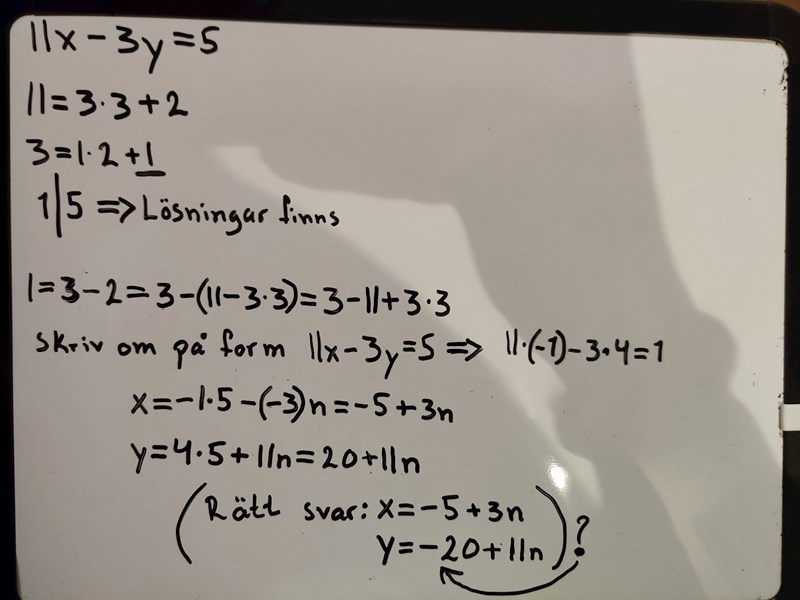 11x-3y=5
11=3·3+2
3=1·2+1
1|5 => Lösningar finns
1=3-2=3-(11-3·3)=3-11+3·3
Skriv om på form 11x-3y=5 => 11·(-1)-3·4=1
x=-1·5-(-3)n=-5+3n
y=4·5+11n=20+11n
(Rätt svar: x=-5+3n
y=-20+11n)?